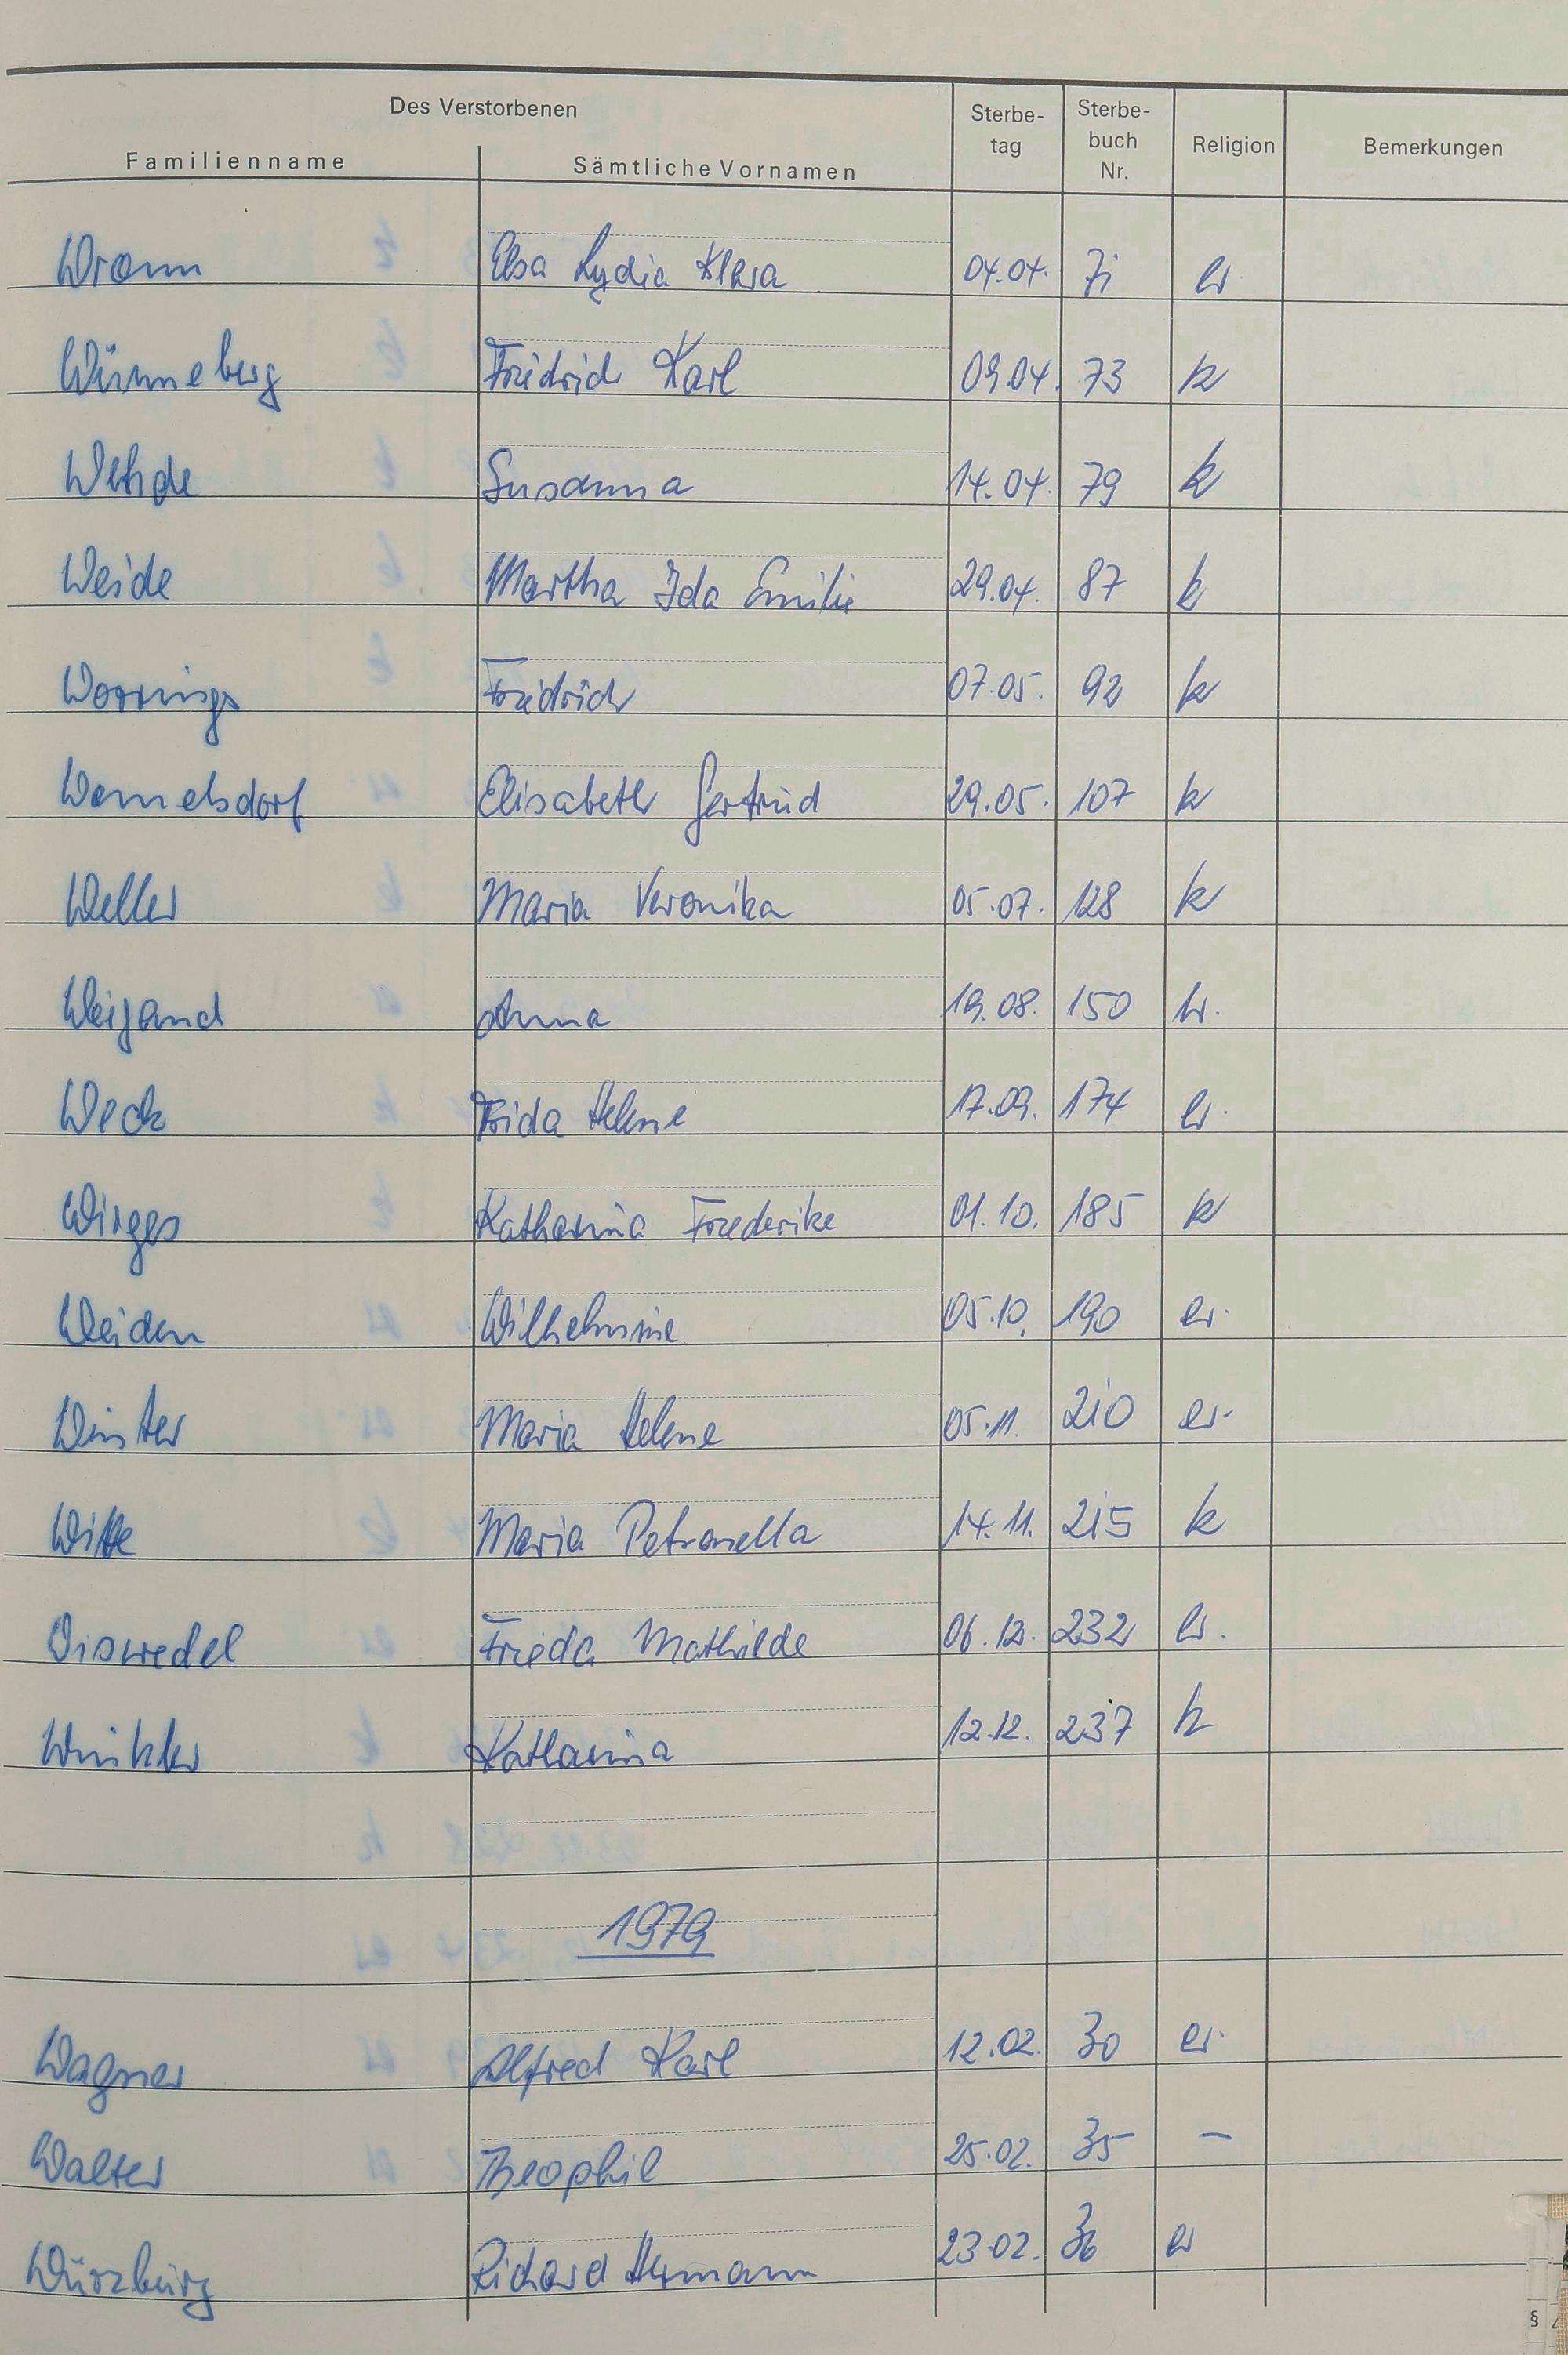 Des Verstorbenen
Familienname Sämtliche Vornamen Sterbe- tag Sterbe- buch Nr. Religion Bemerkungen
Elsa Lydia Klara 04.04. 71 ev
Wünneberg Friedrich Karl 09.04. 73 k
Wehde Susanna 14.04. 79 k
Weide Martha Ida Emilie 29.04. 87 k
Worrings Friedrich 07.05. 92 k
Wormelsdorf Elisabeth Gertrud 29.05. 107 k
Weller Maria Veronika 05.07. 128 k
Weigand Anna 19.08. 150
Weck Frida Helene 17.09. 174 ev.
Wirges Katharina Friederike 01.10. 185 k
Weiden Wilhelmine 05.10. 190 ev.
Winter Maria Helene 05.11. 210 ev.
Witte Maria Petronella 14.11. 215 k
Frieda Mathilde 06.12. 232 ev.
Winkler Katharina 12.12. 237 k
1979
Wagner Alfred Karl 12.02. 30 ev.
Walter Theophil 25.02. 35 –
Würzburg Richard Hermann 23.02. 36 ev
§